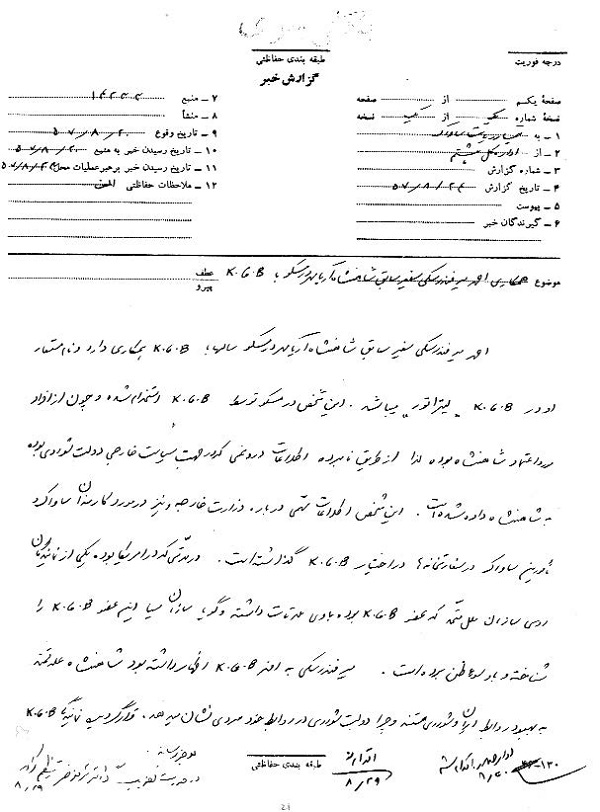 درجه فوریت
طبقه بندی حفاظتی
گزارش خبر
صفحهٔ یکم از صفحه
نسخهٔ شماره یک از یک نسخه
۱ ـ به ریاست ساواک
۲ ـ از اداره کل هشتم
۳ ـ شماره گزارش
۴ ـ تاریخ گزارش ۵۷/۸/۲۴
۵ ـ پیوست
۶ ـ گیرندگان خبر
۷ ـ منبع
۸ ـ منشأ
۹ ـ تاریخ وقوع ۵۷/۸/۲۰
۱۰ ـ تاریخ رسیدن خبر به منبع ۵۷/۸/۲۰
۱۱ ـ تاریخ رسیدن خبر برهبر عملیات محل
۱۲ ـ ملاحظات حفاظتی
موضوع همکاری احمد میرفندرسکی سفیر سابق شاهنشاه آریامهر در مسکو با K.G.B
عطف
پیرو
احمد میرفندرسکی سفیر سابق شاهنشاه آریامهر در مسکو سالها با K.G.B همکاری دارد و نام مستعار
او در K.G.B "لیتراتور" میباشد. این شخص در مسکو توسط K.G.B استخدام شده و چون از افراد
مورد اعتماد شاهنشاه بوده لذا از طریق نامبرده اطلاعات دروغی که در جهت سیاست خارجی دولت شوروی بوده
به شاهنشاه داده شده است. این شخص اطلاعات مهمی درباره وزارت خارجه و نیز در مورد کارمندان ساواک و
مأمورین ساواک در سفارتخانه‌ها در اختیار K.G.B گذاشته است. در مدتی که در امریکا بوده یکی از نمایندگان
روسی سازمان ملل متحد که عضو K.G.B بوده با وی ملاقات داشته و گویا سازمان سیا این عضو K.G.B را
شناخته و به او سوءظن برده است. میرفندرسکی به افسر K.G.B اظهار داشته بود شاهنشاه علاقمند
به بهبود روابط ایران و شوروی هستند و چرا دولت شوروی در روابط خود سردی نشان میدهد. قرار گردید نماینده K.G.B
طبقه بندی حفاظتی
۸/۲۹